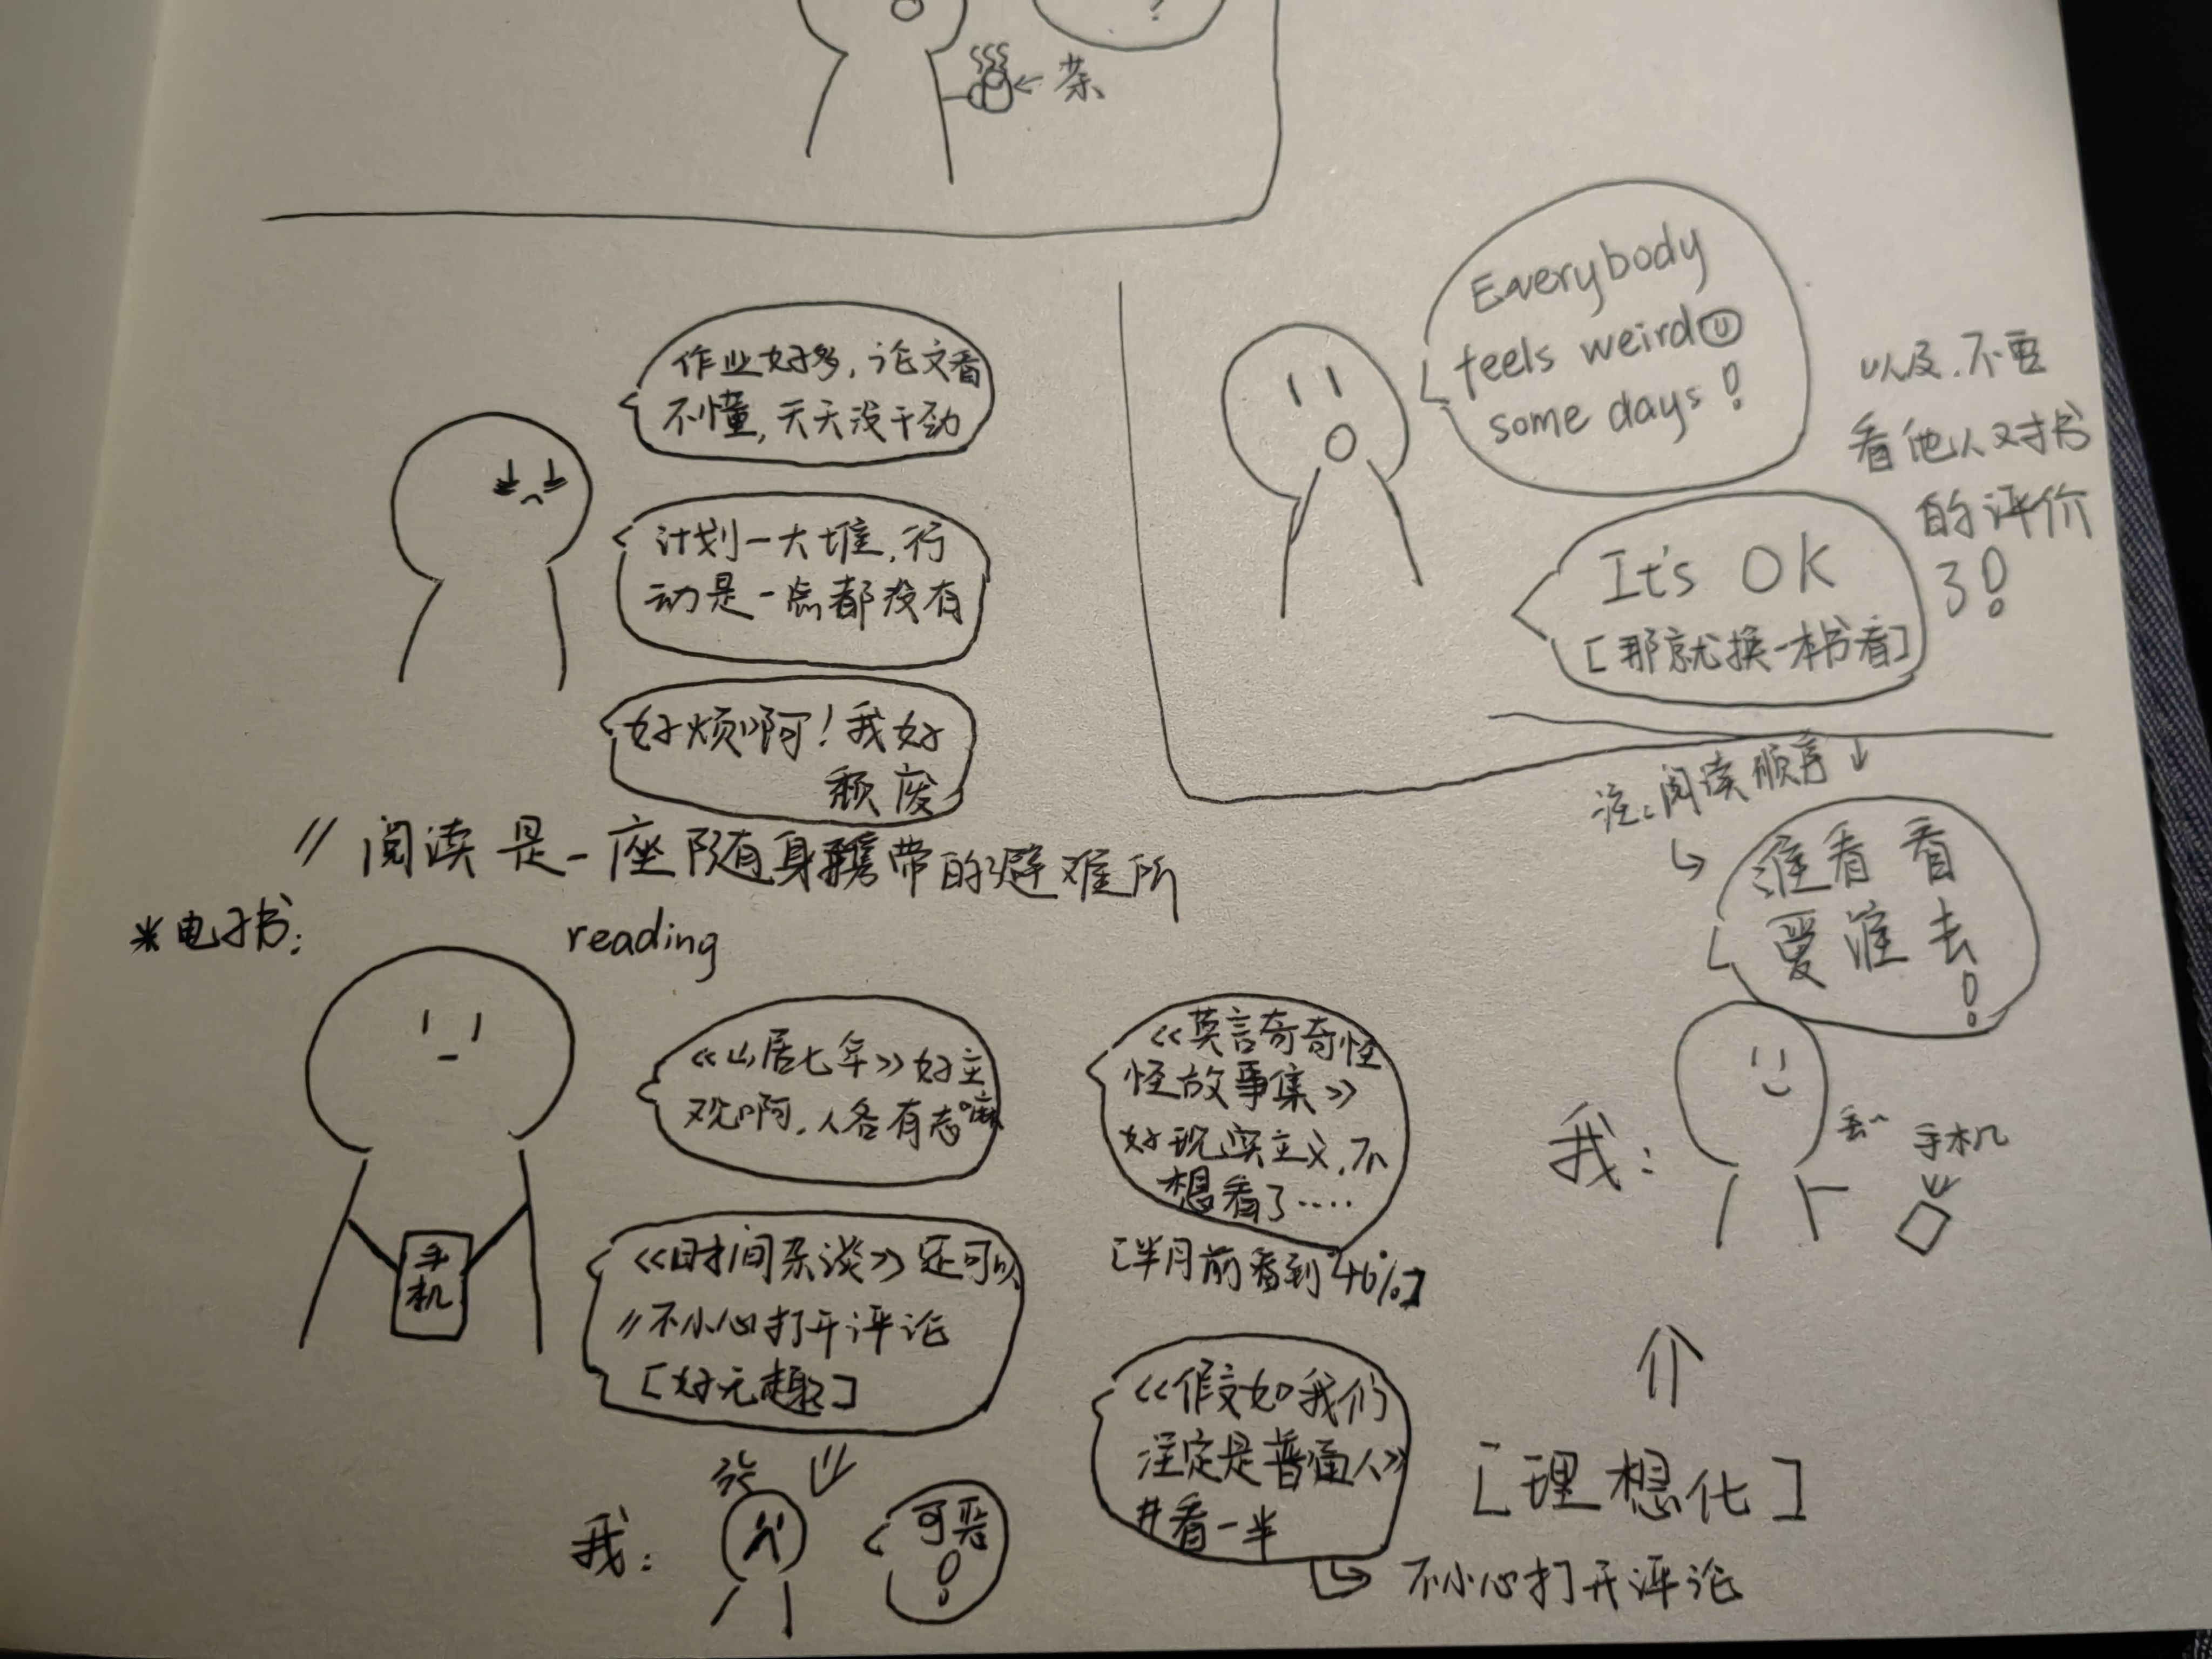 ?
茶
作业好多，论文看
不懂，天天没干劲
计划一大堆，行
动是一点都没有
好烦啊！我好
颓废
Everybody
feels weird
some days!
It's OK
[那就换一本书看]
以及，不要
看他人对书
的评价
了!
// 阅读是一座随身携带的避难所
*电子书：
reading
手
机
《山居七年》好主
观啊，人各有志嘛
《时间杂谈》还可以
//不小心打开评论
[好无趣]
我：
可恶
!
《莫言奇奇怪
怪故事集》
好现实主义，不
想看了……
[半月前看到46%]
《假如我们
注定是普通人》
#看一半
不小心打开评论
注：阅读顺序↓
谁看看
爱谁去
!
我：
丢~
手机
[理想化]